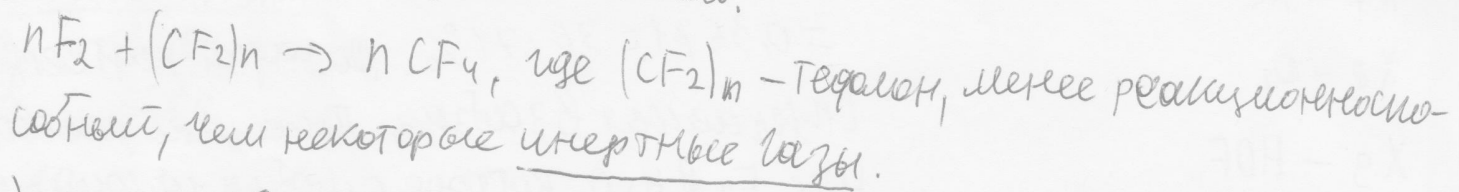 nF₂ + (CF₂)n → n CF₄, где (CF₂)n – тефлон, менее реакционноспо-
собный, чем некоторые инертные газы.